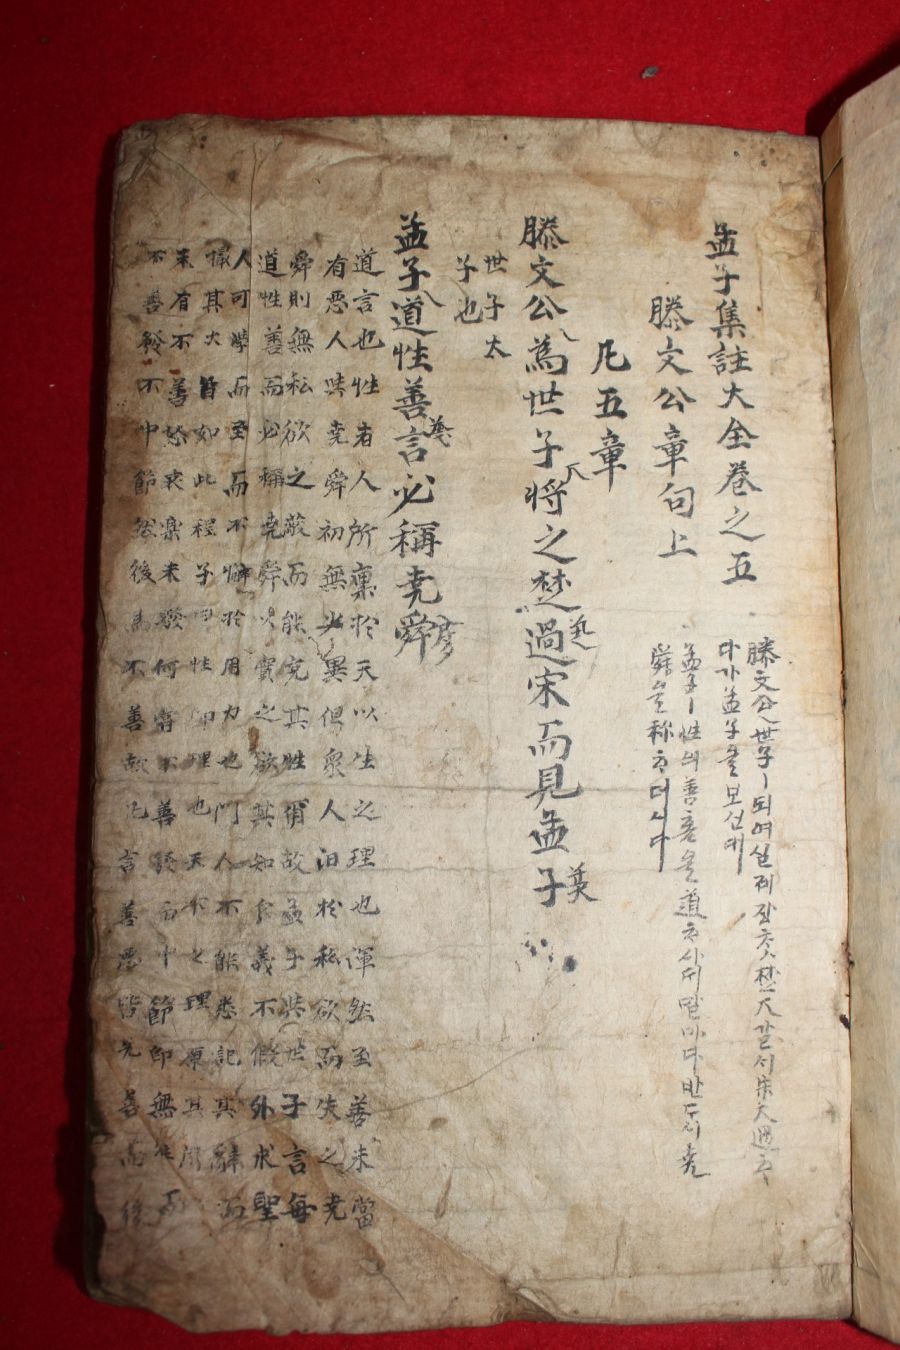 孟子集註大全卷之五
滕文公章句上
滕文公世子ㅣ되여실제장ᄎᆞᆺ楚애갈서宋애過ᄒᆞ
다가孟子ᄅᆞᆯ보신대
孟子ㅣ性의善홈을道ᄒᆞ샤ᄃᆡ말마다반ᄃᆞ시堯
舜을称ᄒᆞ더시다
凡五章
滕文公為世子將之楚過宋而見孟子
世子太
子也
孟子道性善言必稱堯舜
道言也性者人所稟於天以生之理也渾然至善未嘗
有惡人與堯舜初無少異但衆人汩於私欲而失之堯
舜則無私欲之蔽而能充其性爾故孟子與世子言每
道性善而必稱堯舜以實之欲其知仁義不假外求聖
人可學而至而不懈於用力也門人不能悉記其辭而
撮其大旨如此程子曰性即理也天下之理原其所
来有不善喜怒哀楽未發何嘗不善發而中節即無往而
不善發不中節然後為不善故凡言善惡皆先善而後